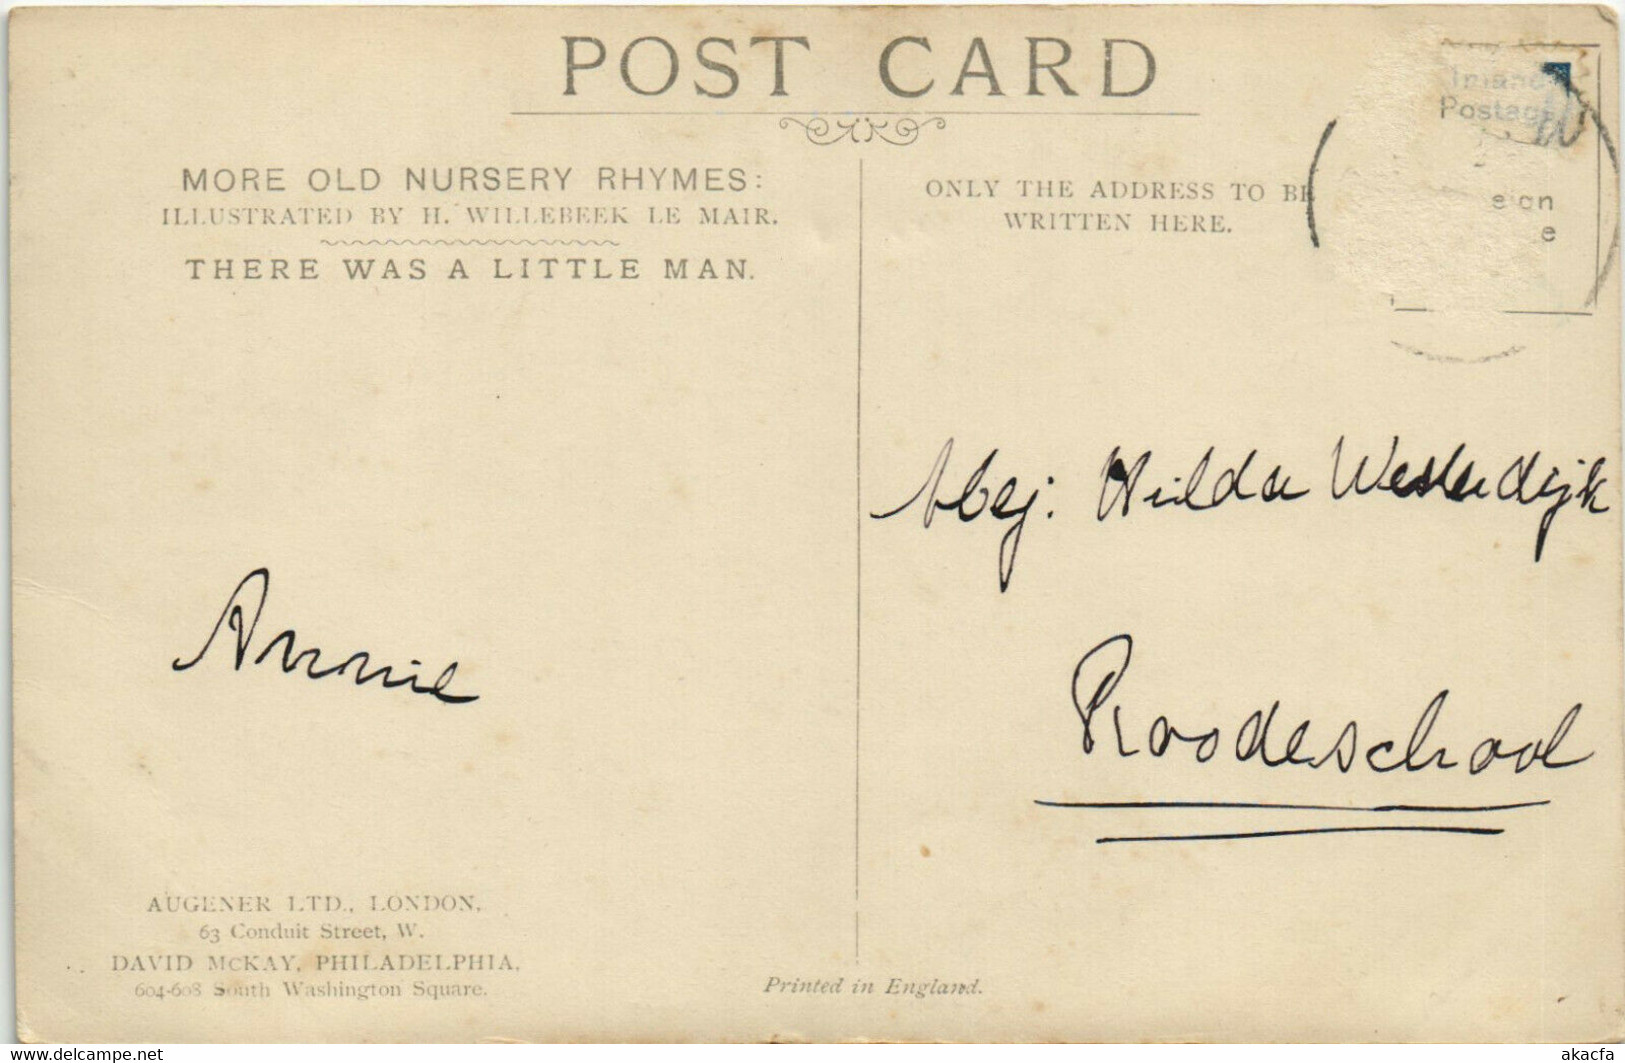 POST CARD
MORE OLD NURSERY RHYMES:
ILLUSTRATED BY H. WILLEBEEK LE MAIR.
THERE WAS A LITTLE MAN.
ONLY THE ADDRESS TO BE
WRITTEN HERE.
Inland
Postage
eign
e
Hilda Westerdijk
Roodeschool
Annie
AUGENER LTD., LONDON,
63 Conduit Street, W.
DAVID McKAY, PHILADELPHIA,
604-608 South Washington Square.
Printed in England.
www.delcampe.net
akacfa